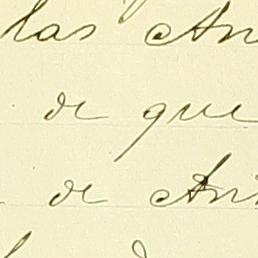 las An
de que
de Ant